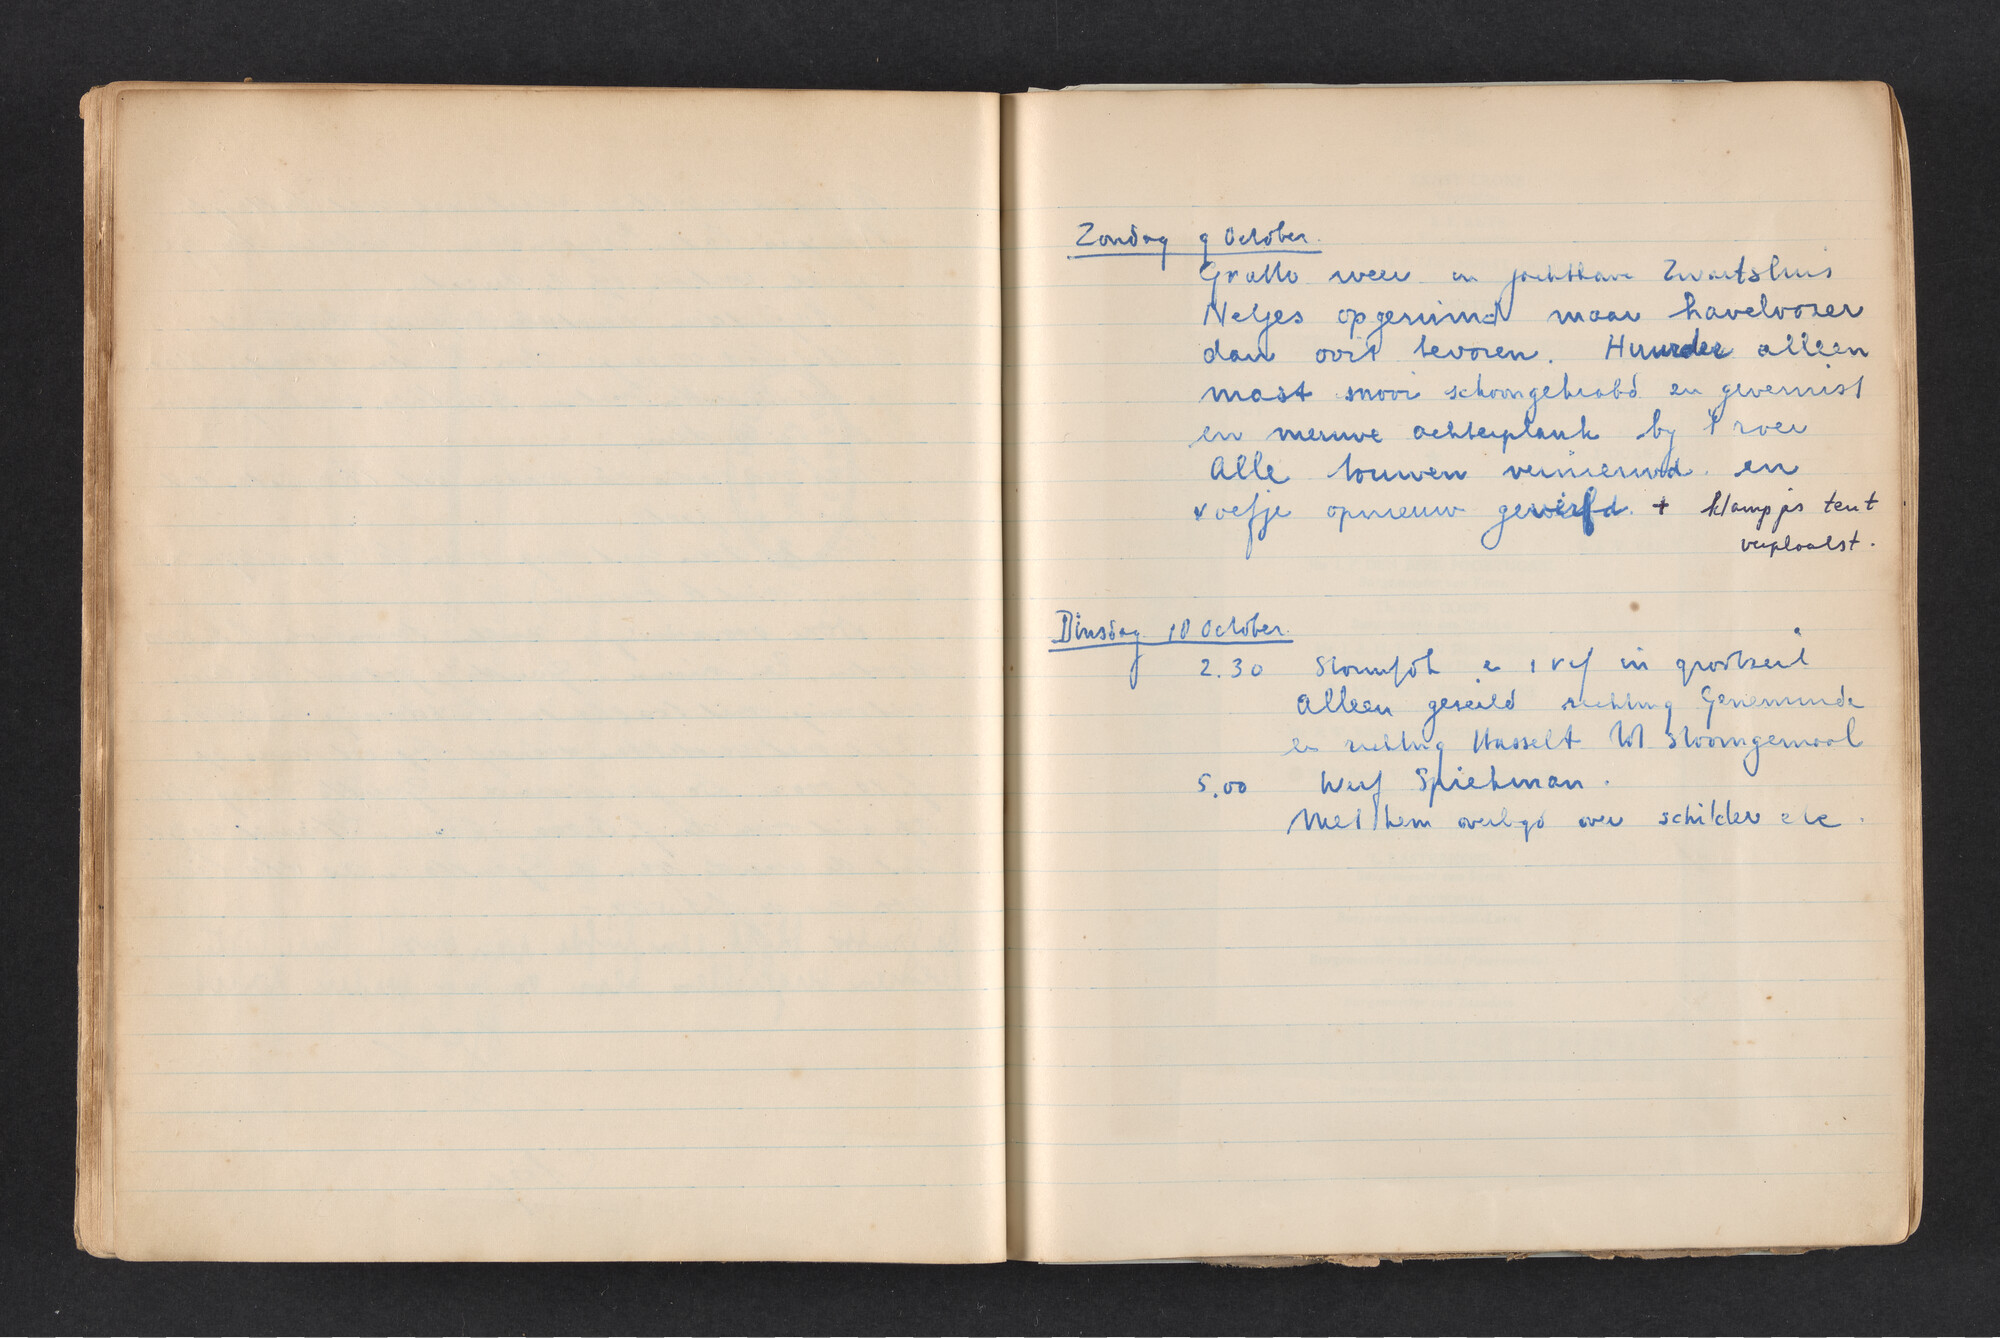 Zondag 9 October.
Gratto weer in jachthave Zwartsluis
Netjes opgeruimd maar havelozer
dan ooit tevoren. Huurder alleen
mast mooi schoongekrabd en gevernist
en nieuwe achterplank by 't roer
Alle touwen vernieuwd en
roefje opnieuw geverfd. + klampjes tent
verplaatst.
Dinsdag 10 October.
2.30 Stormfok e 1 ref in grootzeil
Alleen gezeild richting Genemuide
en richting Hasselt tot stoomgemaal
5.00 Werf Spiekman.
Met hem overlegd over schilder etc.